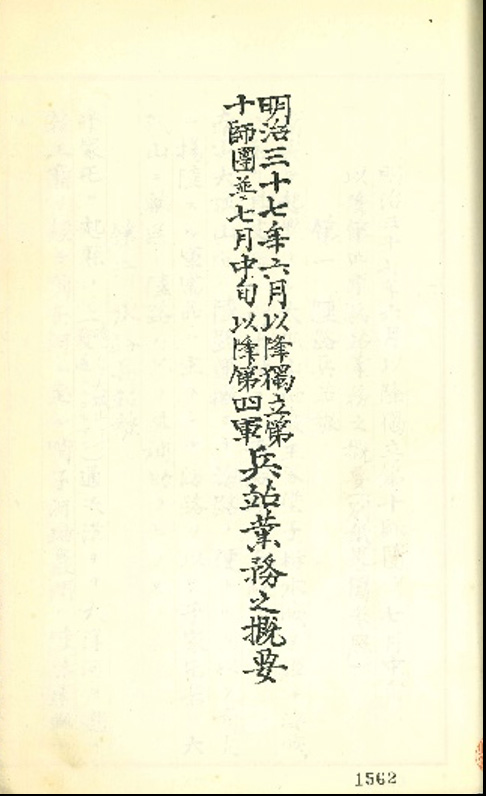 明治三十七年六月以降獨立第
十師團並七月中旬以降第四軍
兵站業務之概要
1562